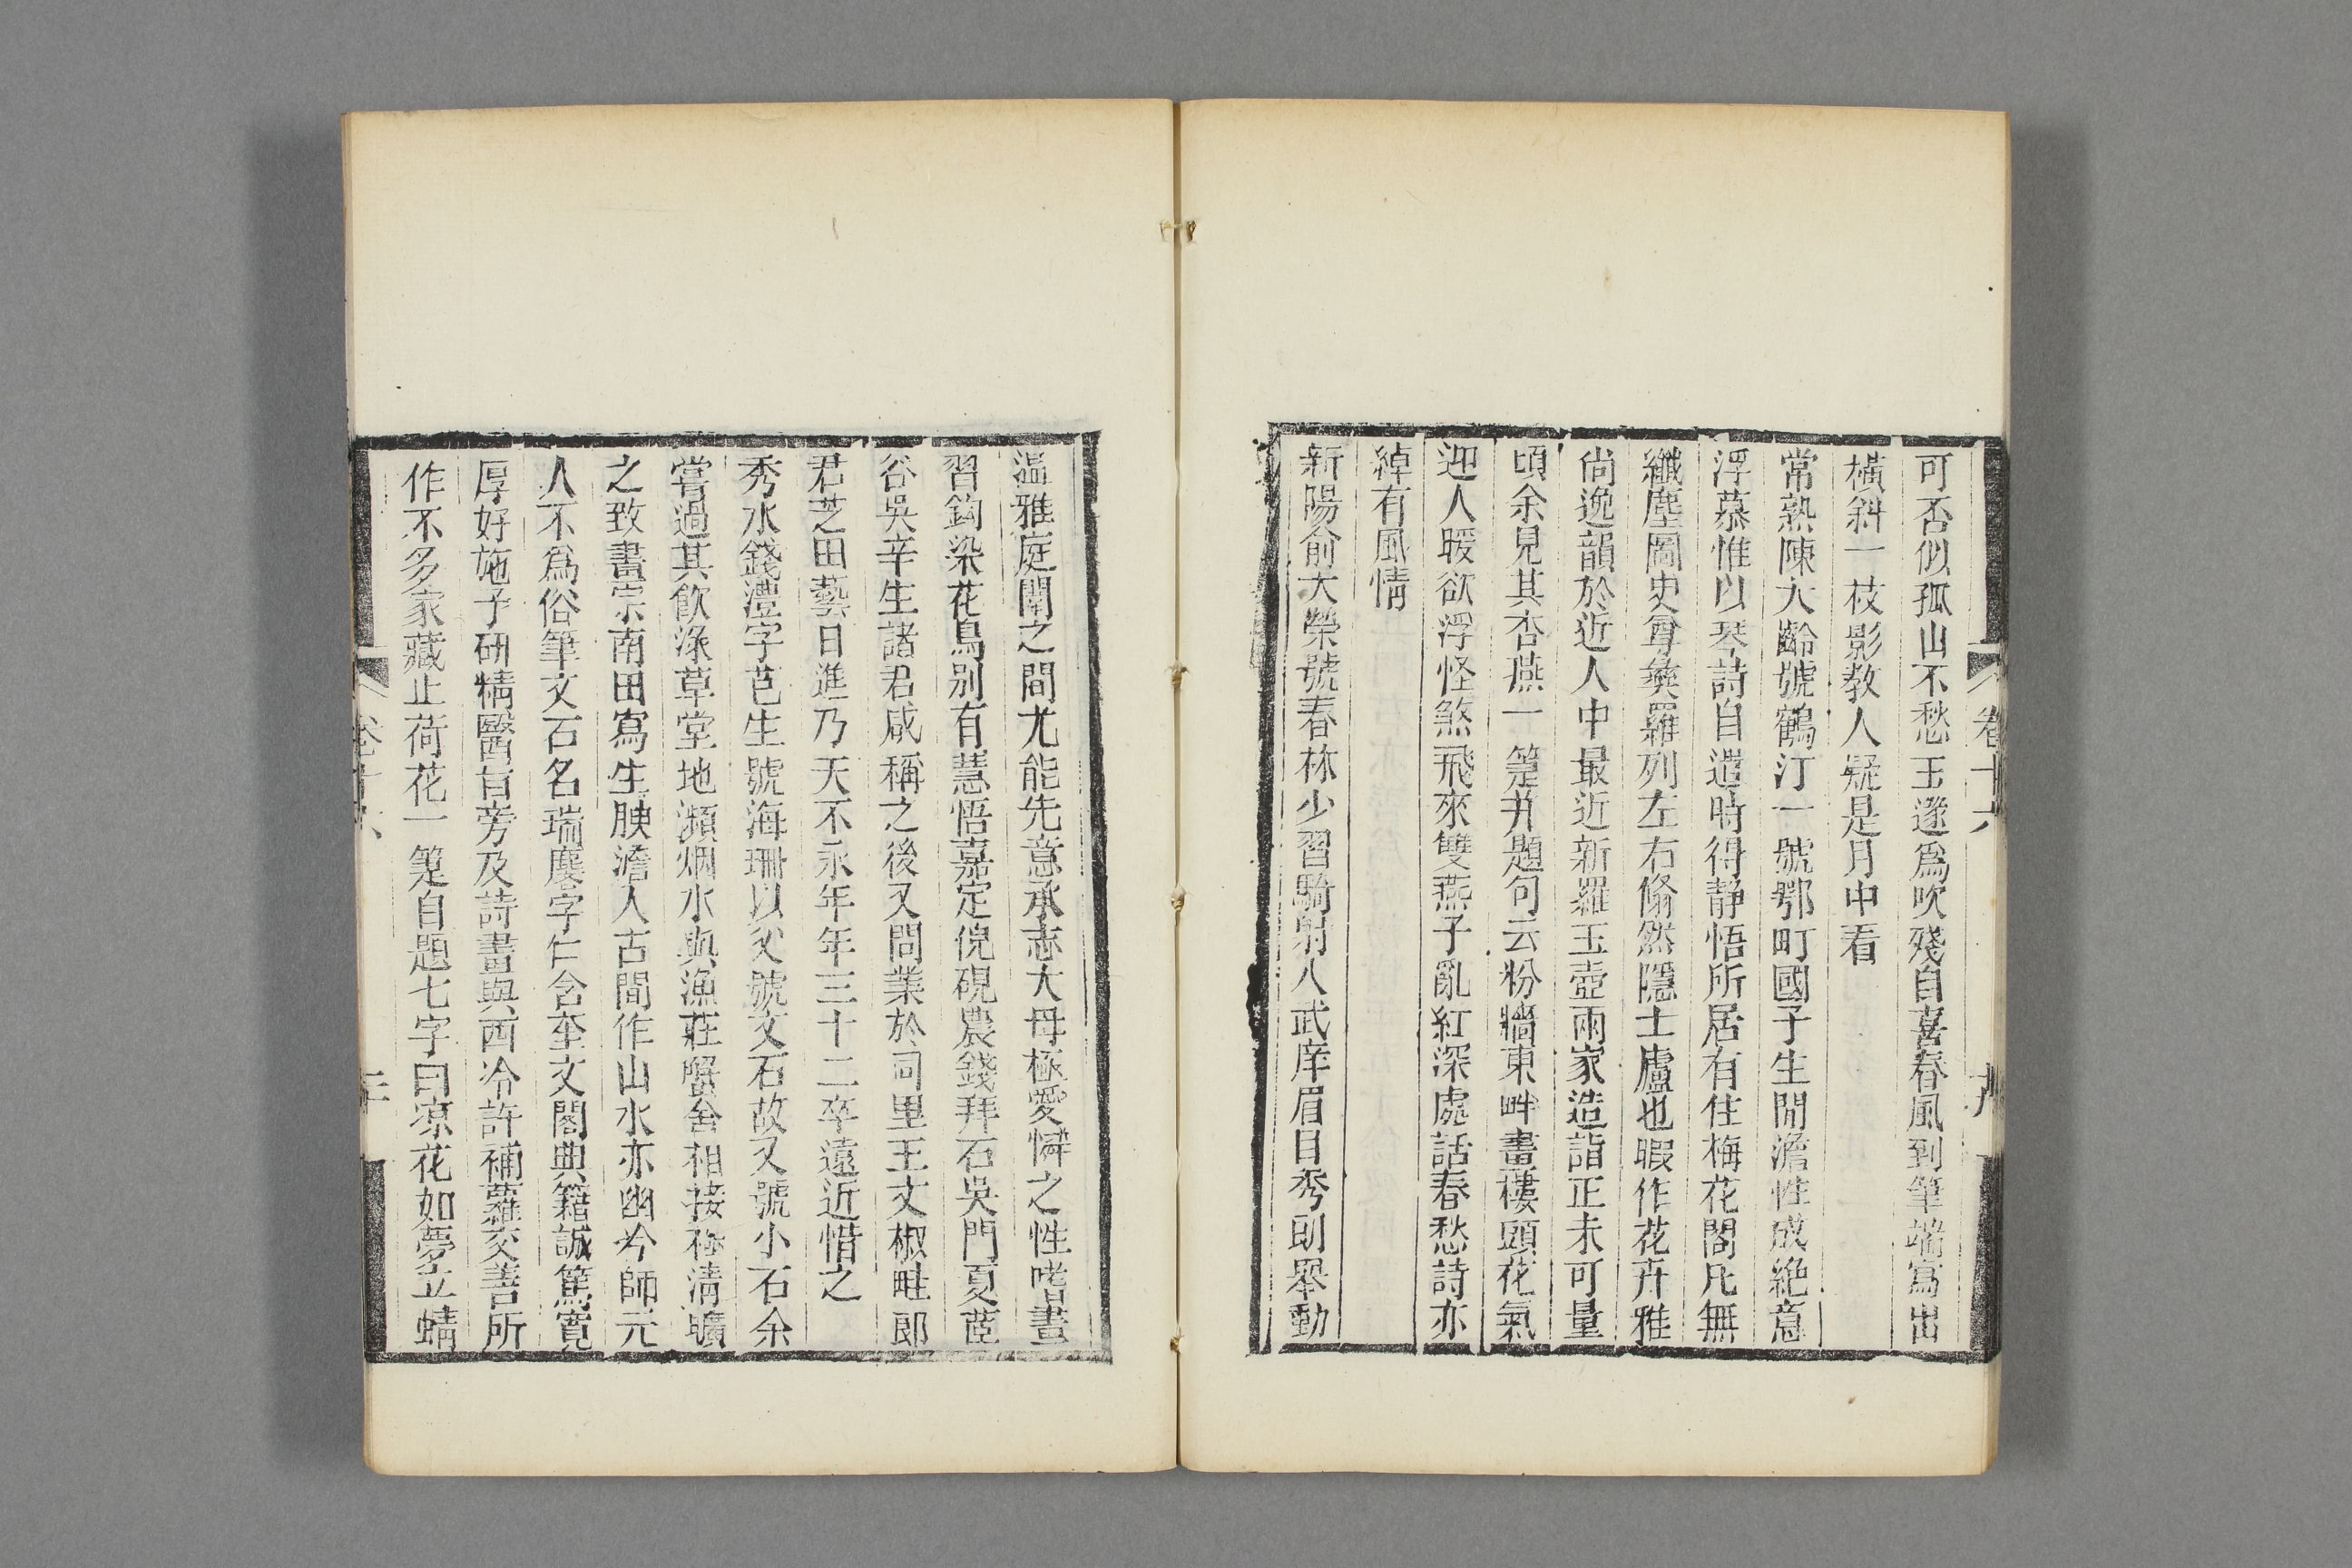 卷十六
十九
可否似孤山不愁玉邃爲吹殘自喜春風到筆端寫出
橫斜一枝影教人疑是月中看
常熟陳大齡號鶴汀一號鄂町國子生閒澹性成絶意
浮慕惟以琴詩自遣時得靜悟所居有住梅花閣凡無
纖塵圖史尊彝羅列左右翛然隱士廬也暇作花卉雅
尙逸韻於近人中最近新羅玉壺兩家造詣正未可量
頃余見其杏燕一箑并題句云粉牆東畔畫樓頭花氣
迎人暖欲浮怪煞飛來雙燕子亂紅深處話春愁詩亦
綽有風情
新陽俞大榮號春林少習騎射入武庠眉目秀朗舉動
溫雅庭闈之間尤能先意承志大母極愛憐之性嗜畫
習鉤染花鳥別有慧悟嘉定倪硯農錢拜石吳門夏茝
谷吳辛生諸君咸稱之後又問業於同里王文椒畦郞
君芝田藝日進乃天不永年年三十二卒遠近惜之
秀水錢澧字芑生號海珊以父號文石故又號小石余
嘗過其飮淥草堂地瀕烟水與漁莊蟹舍相接極淸曠
之致畫宗南田寫生腴澹入古閒作山水亦幽冷師元
人不爲俗筆文石名瑞麐字仁含奎文閣典籍誠篤寬
厚好施予硏精醫旨旁及詩畫與西泠許補蘿交善所
作不多家藏止荷花一箑自題七字曰凉花如夢立蜻
卷十六
二十